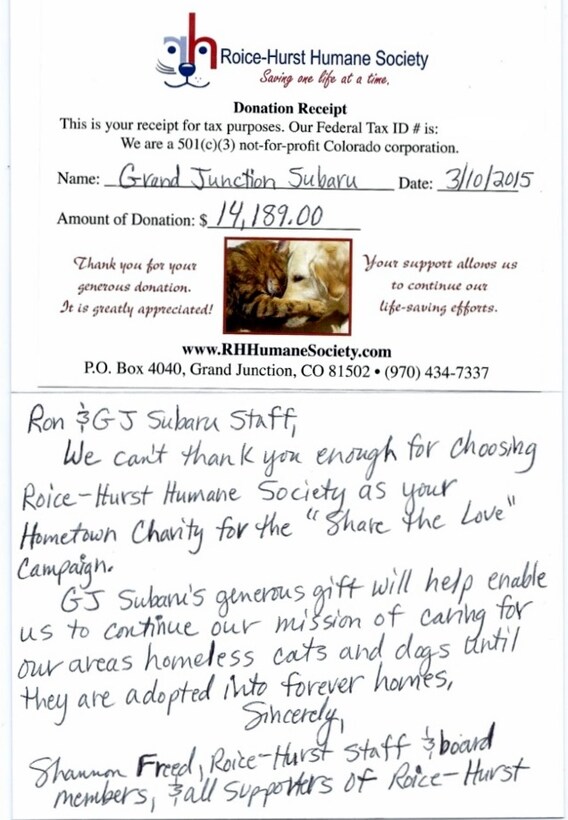 Roice-Hurst Humane Society
Saving one life at a time.
Donation Receipt
This is your receipt for tax purposes. Our Federal Tax ID # is:
We are a 501(c)(3) not-for-profit Colorado corporation.
Name: Grand Junction Subaru Date: 3/10/2015
Amount of Donation: $ 14,189.00
Thank you for your
generous donation.
It is greatly appreciated!
Your support allows us
to continue our
life-saving efforts.
www.RHHumaneSociety.com
P.O. Box 4040, Grand Junction, CO 81502 • (970) 434-7337
Ron & GJ Subaru Staff,
We can't thank you enough for choosing
Roice-Hurst Humane Society as your
Hometown Charity for the "Share the Love"
Campaign.
GJ Subaru's generous gift will help enable
us to continue our mission of caring for
our areas homeless cats and dogs until
they are adopted into forever homes.
Sincerely,
Shannon Freed, Roice-Hurst Staff & board
members, & all supporters of Roice-Hurst